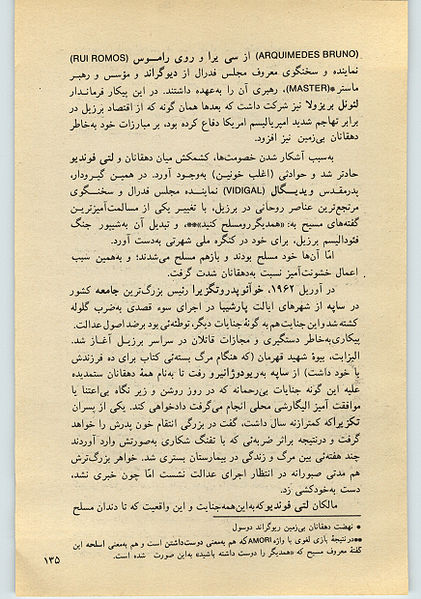 (ARQUIMEDES BRUNO) از سی یرا و روی رامـوس (RUI ROMOS)
نماینده و سخنگوی معروف مجلس فدرال از دیوگراند و مؤسس و رهبر
ماستر*(MASTER)، رهبری آن را به‌عهده داشتند. در این پیکار فرمانـدار
لئونل بریزولا نیز شرکت داشت که بعدها همان گونه که از اقتصاد برزیل در
برابر تهاجم شدید امپریالیسم امریکا دفاع کرده بود، بر مبارزات خود به‌خاطر
دهقانان بی‌زمین نیز افزود.
به‌سبب آشکار شدن خصومت‌ها، کشمکش میان دهقانان و لتی فوندیو
حادتر شد و حوادثی (اغلب خونیـن) به‌وجود آورد. در همیـن گیرودار،
پدرمقدس ویدیـگال (VIDIGAL) نماینـده مجلس فدرال و سخنگـوی
مرتجع‌ترین عناصر روحانی در برزیل، با تغییر یکی از مسالمت‌آمیزتریـن
گفته‌های مسیح به: «همدیگررومسلح کنید»**، و تبدیل آن به‌شیپور جنگ
فئودالیسم برزیل، برای خود در کنگره ملی شهرتی به‌دست آورد.
امّا آن‌ها خود مسلح بودند و بازهم مسلح می‌شدند؛ و به‌همین سبب
اعمال خشونت‌آمیز نسبت به‌دهقانان شدت گرفت.
در آوریل ۱۹۶۲، خوآئو پدروتگزیرا رئیس بزرگ‌ترین جامعه کشور
در ساپه از شهرهای ایالت پارئیبا در اجرای سوء قصدی به‌ضرب گلوله
کشته شد و این جنایت هم به گونهٔ جنایات دیگر، توطئه‌ئی بود برضد اصول عدالت.
پیکاری به‌خاطر دستگیری و مجازات قاتلان در سراسر برزیـل آغـاز شد.
الیزابت، بیوهٔ شهید قهرمان (که هنگام مرگ بسته‌ئی کتاب برای ده فرزندش
با خود داشت) از ساپه به‌ریودوژانیرو رفت تا به‌نام همهٔ دهقانان ستمدیده
علیه این گونه جنایات بی‌رحمانه که در روز روشن و زیر نگاه بی‌اعتنا یا
موافقت آمیز الیگارشی محلی انجام می‌گرفت دادخواهی کند. یکی از پسران
تکزیرا که کمترازنه سال داشت، گفت در بزرگی انتقام خون پدرش را خواهد
گرفت و درنتیجه براثر ضربه‌ئی که با تفنگ شکاری به‌صورتش وارد آوردند
چند هفته‌ئی بین مرگ و زندگی در بیمارستان بستری شد. خواهر بزرگ‌ترش
هم مدتی صبورانه در انتظار اجرای عدالت نشست امّا چون خبری نشد،
دست به‌خودکشی زد.
مالکان لتی فوندیو که به‌این همه جنایت و این واقعیت که تا دندان مسلح
* نهضت دهقانان بی‌زمین ریوگراند دوسول
**درنتیجهٔ بازی لغوی با واژه AMORI که هم به‌معنی دوست‌داشتن است و هم به‌معنی اسلحه این
گفتهٔ معروف مسیح که «همدیگر را دوست داشته باشید» به‌این صورت شده است.
۱۳۵